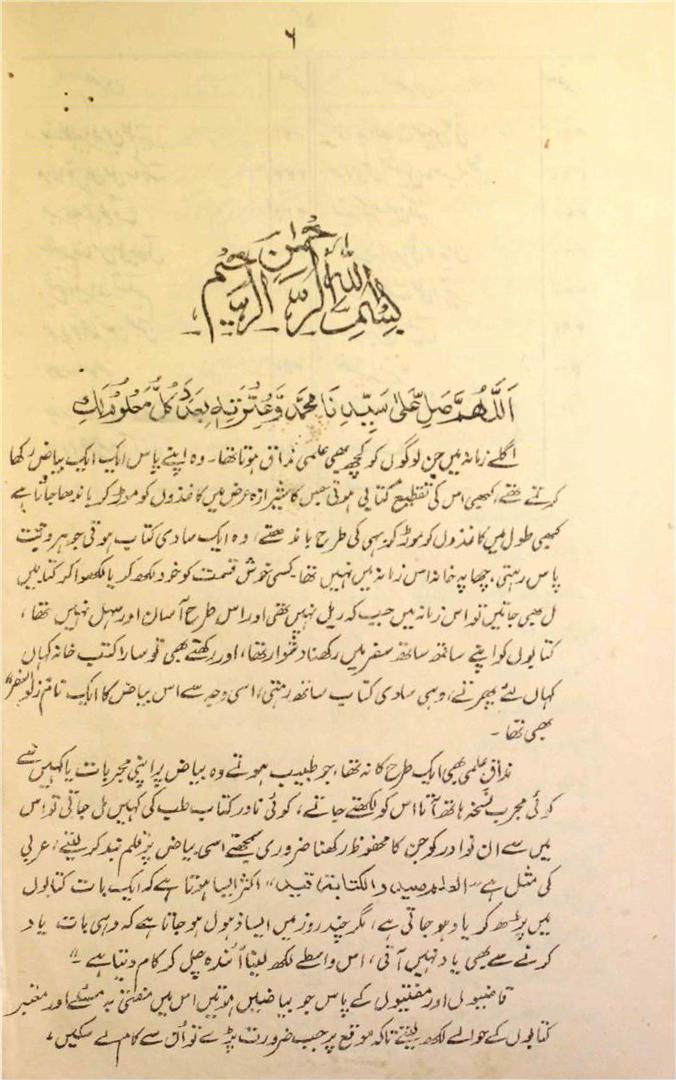 ۶
بِسْمِ اللّٰهِ الرَّحْمٰنِ الرَّحِيْمِ
اَللّٰهُمَّ صَلِّ عَلٰى سَيِّدِنَا مُحَمَّد وَّعِتْرَتِهٖ بِعَدَدِ كُلِّ مَعْلُوْمٍ لَّكَ
اگلے زمانہ میں جن لوگوں کو کچھ بھی علمی مذاق ہوتا تھا۔ وہ اپنے پاس ایک ایک بیاض رکھا
کرتے تھے، کبھی اس کی تقطیع کتابی ہوتی جس کا شیرازہ عرض میں کاغذوں کو موڑ کر باندھا جاتا ہے
کبھی طول میں کاغذوں کو موڑ کر بہی کی طرح باندھتے، وہ ایک سادی کتاب ہوتی جو ہر وقت
پاس رہتی، چھاپہ خانہ اس زمانہ میں نہیں تھا۔ کسی خوش قسمت کو خود لکھ کر یا لکھوا کر کتابیں
مل بھی جاتیں تو اس زمانہ میں جب کہ ریل نہیں تھی اور اس طرح آسان اور سہل نہیں تھا،
کتابوں کو اپنے ساتھ ساتھ سفر میں رکھنا دشوار تھا، اور رکھتے بھی تو سارا کتب خانہ کہاں
کہاں لئے پھرتے، وہی سادی کتاب ساتھ رہتی، اسی وجہ سے اس بیاض کا ایک نام زاد سفر“
بھی تھا۔
مذاق علمی بھی ایک طرح کا نہ تھا، جو طبیب ہوتے وہ بیاض پر اپنی مجربات یا کہیں سے
کوئی مجرب نسخہ ہاتھ آتا اس کو لکھتے جاتے، کوئی نادر کتاب طب کی کہیں مل جاتی تو اس
میں سے ان نوادر کو جن کا محفوظ رکھنا ضروری سمجھتے اسی بیاض پر قلم بند کر لیتے، عربی
کی مثل ہے ”العلم صید والکتابة قید“ اکثر ایسا ہوتا ہے کہ ایک بات کتابوں
میں پڑھ کر یاد ہو جاتی ہے، مگر چند روز میں ایسا ذہول ہو جاتا ہے کہ وہی بات یاد
کرنے سے بھی یاد نہیں آتی، اس واسطے لکھ لینا آئندہ چل کر کام دیتا ہے۔“
قاضیوں اور مفتیوں کے پاس جو بیاضیں ہوتیں اس میں مفتیٰ بہ مسئلے اور معتبر
کتابوں کے حوالے لکھ لیتے تاکہ موقع پر جب ضرورت پڑے تو اس سے کام لے سکیں،